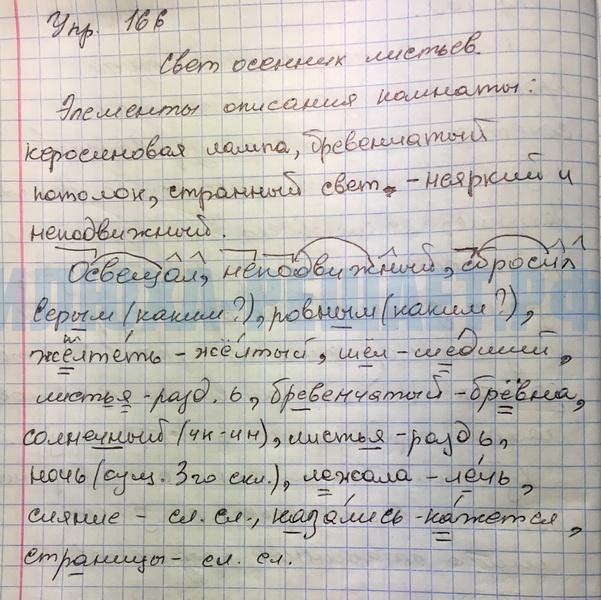 Упр. 166
Свет осенник листьев.
Элементы описания комнаты:
керосиновая лампа, бревенчатый
потолок, странный свет - неяркий и
неподвижный.
Освещал, неподвижный, сбросил
серым (каким?), ровным (каким?),
желтеть - жёлтый, шёл - шедший,
листья - разд. ь, бревенчатый - брёвна,
солнечный (чк-чн), листья - разд ь,
ночь (сущ. 3го скл.), лежала - лечь,
сияние - сл. сл., казались - кажется,
страницы - сл. сл.